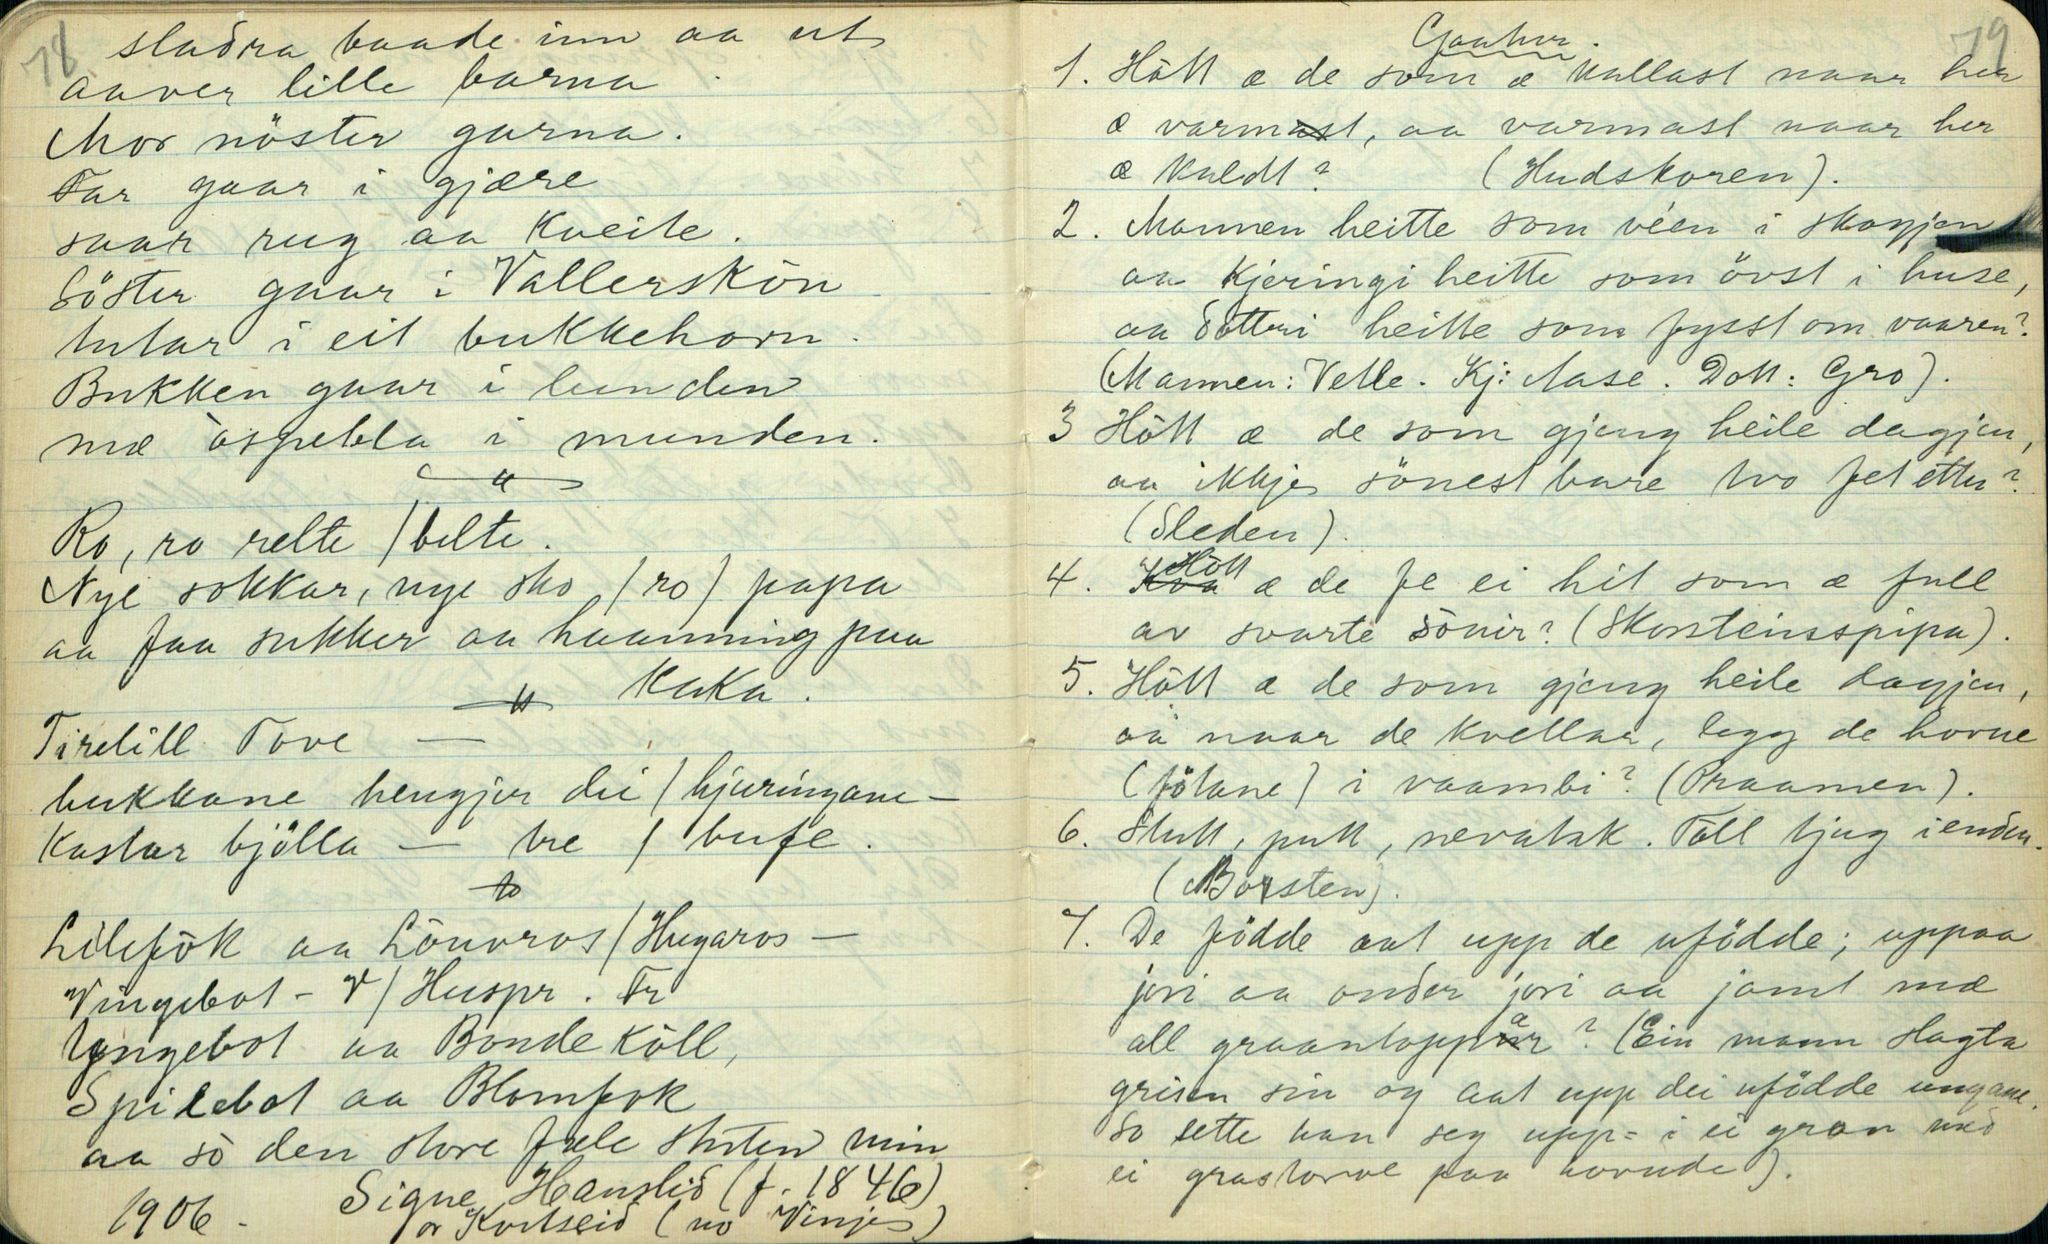 78
sladra baade inn aa ut
aaver lille barna
Mor nöster garna.
Far gaar i gjære
saar rug aa Kveite.
Söster gaar i Vallerskön
tutar i eit bukkehorn.
Bukken gaar i lunden
mæ òspebla i munden.
"
Ro, ro relte / belte.
Nye sokkar, nye sko / ro / papa
aa faa sukker aa haanning paa
Kaka.
"
Tirelill Tove —
bukkane hengjer dei / hjuringane —
Kastar bjölla — tre / bufe.
Lilefòk aa Löuvros / Hugaros —
Vingebot - V / Huspr. Fr
Yngebot aa Bonde Köll,
Spilebot aa Blomfok
aa sò den store fæle stuten min
1906. Signe Hanslid (f. 1846)
or Kvitseid (no Vinje)
79
Gaatur.
1. Hött æ de som æ kallast naar her
æ varmast, aa varmast naar her
æ kaldt? (Hudskoren).
2. Mannen heitte som véen i skogjen
aa Kjeringi heitte som övst i huse,
aa dotteri heitte som fysst om vaaren?
(Mannen: Vetle. Kj: Aase. Dott: Gro).
3 Hött æ de som gjeng heile dagjen,
aa ikkje sönest bare tvo fet etter?
(Sleden).
4. Kva Hött æ de fe ei hit som æ full
av svarte sönir? (Skorsteinspipa).
5. Hött æ de som gjeng heile dagjen,
aa naar de kvellar, legg de horne
(fötane) i vaambi? (Praamen).
6. Stutt, putt, nevatak. Toll tjug i enden.
(Borsten).
7. De födde aat upp de ufödde; uppaa
jori aa onder jori aa jamt mæ
all graantoppar? (Ein mann slagta
grisen sin og aat upp dei ufödde ungane.
So sette han seg upp i ei gran med
ei grastorve paa hovude).